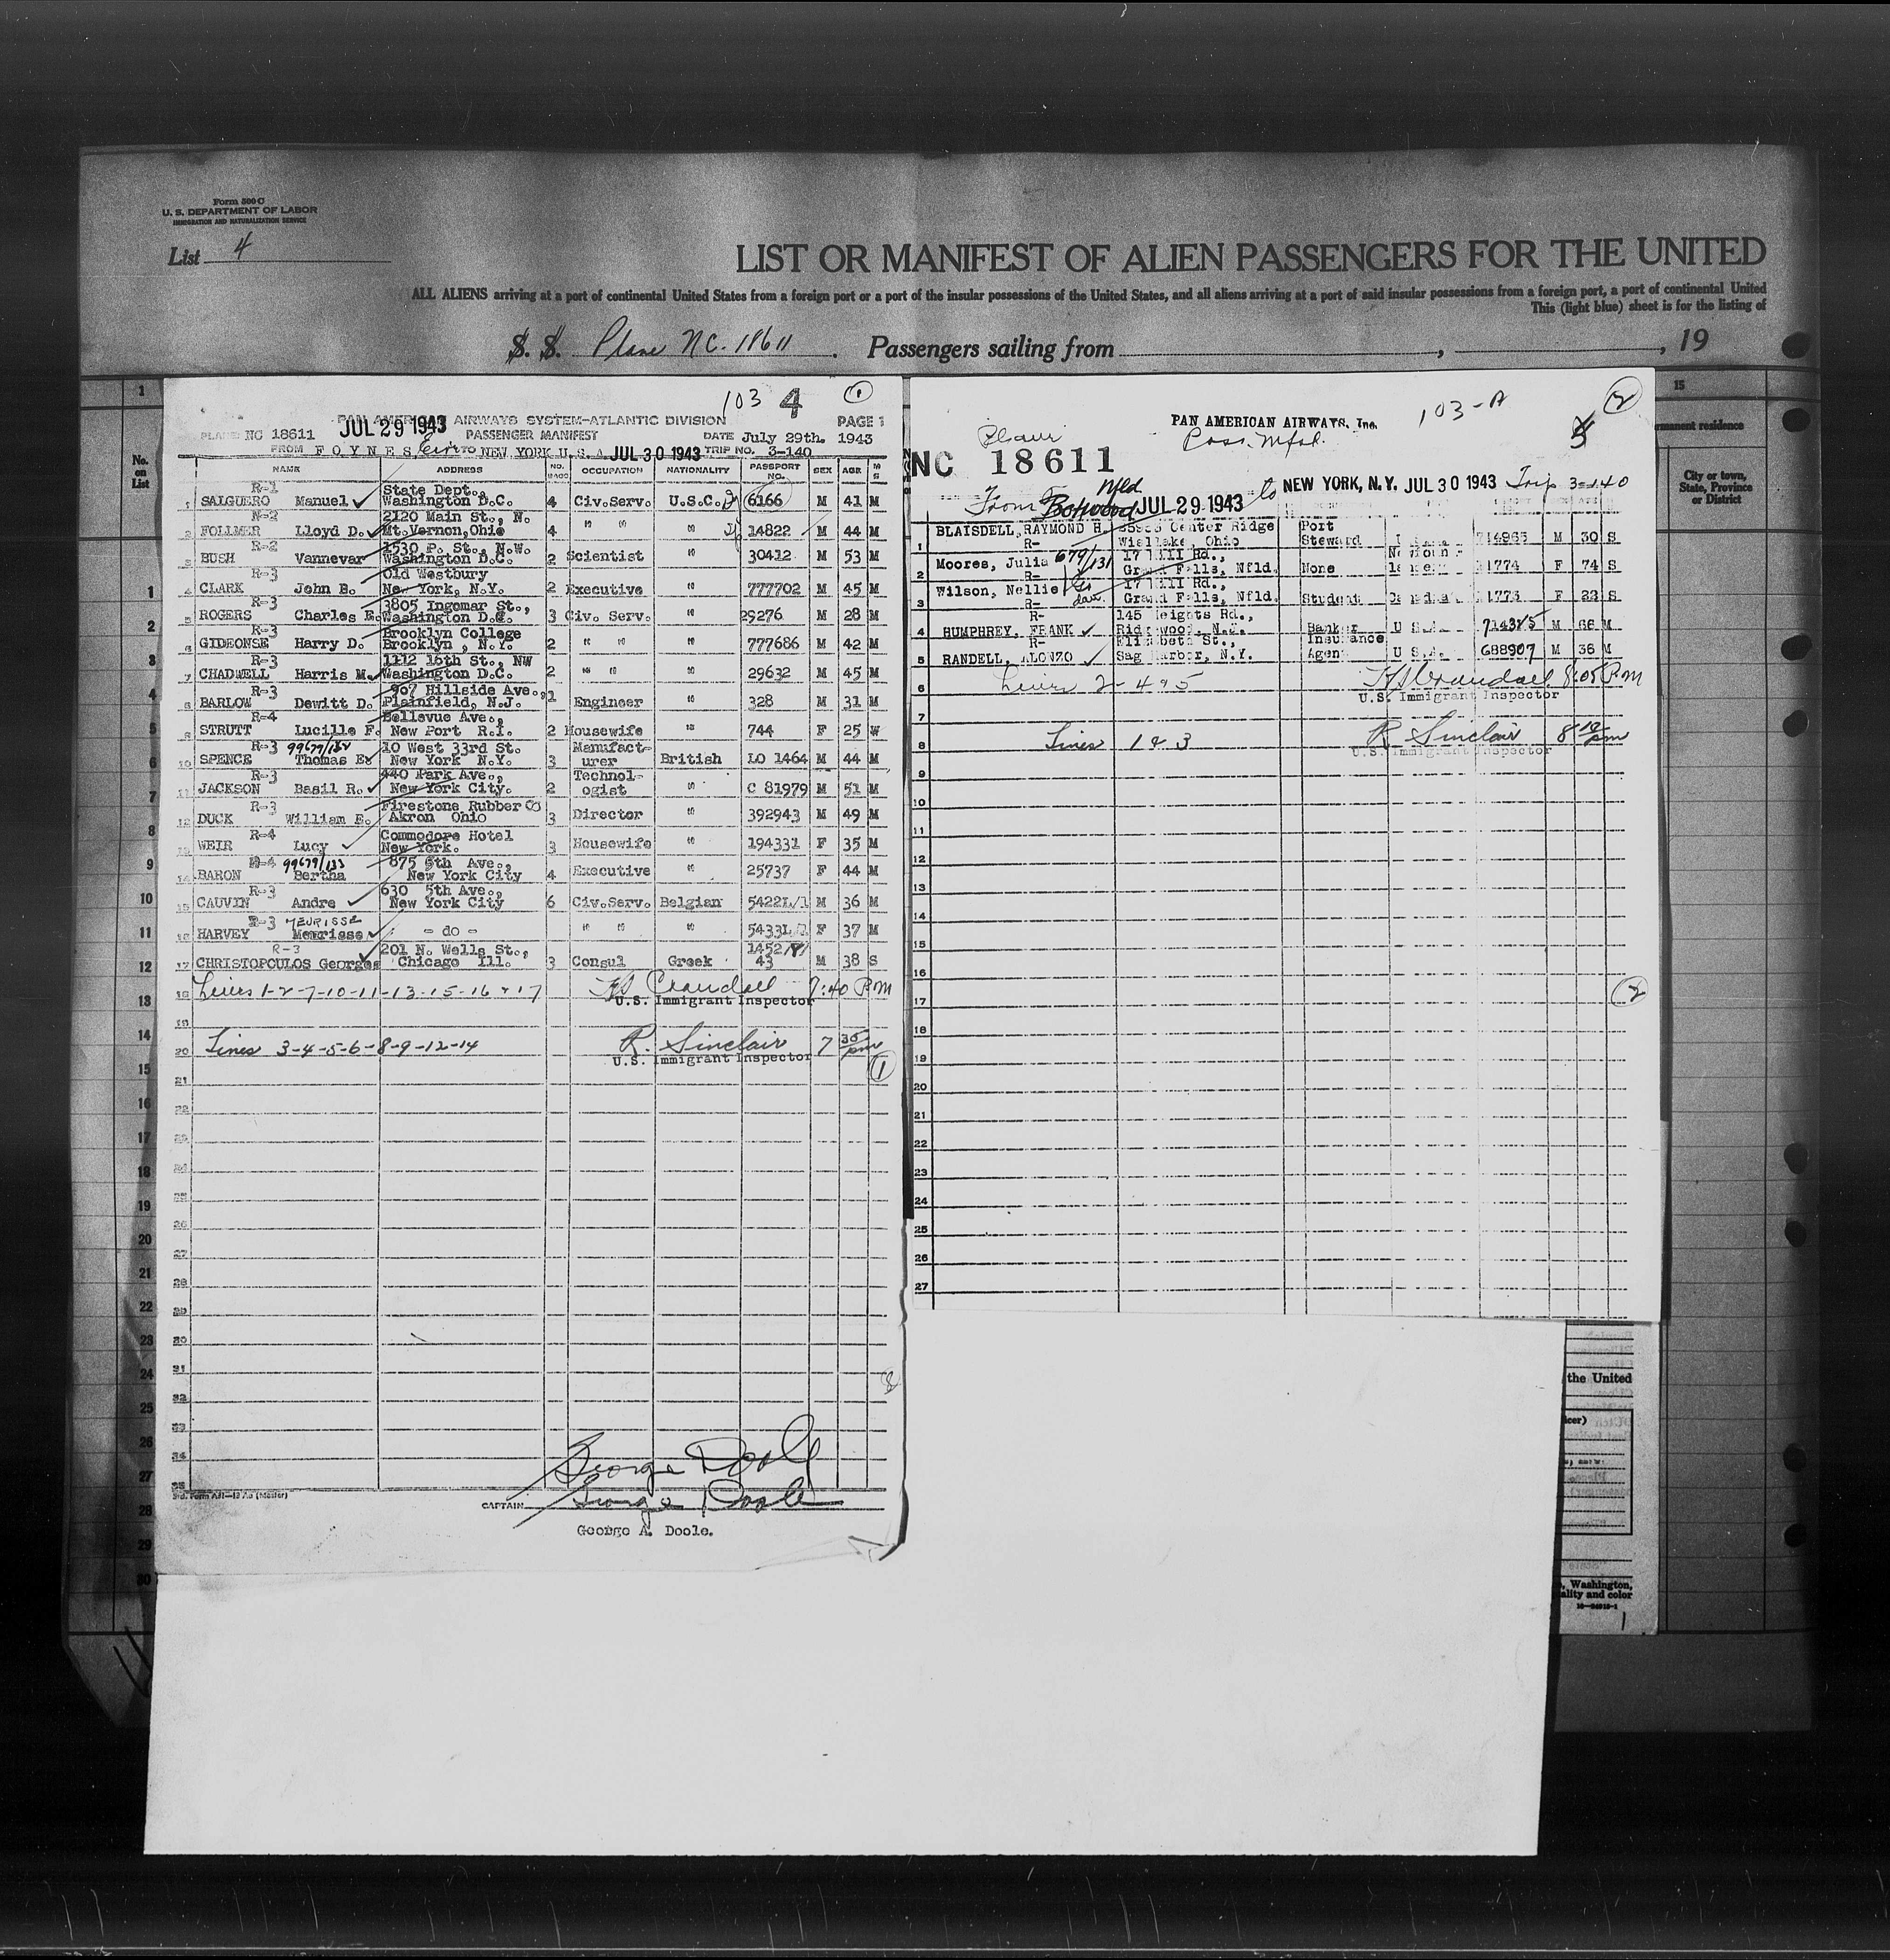 Form 500 C
U. S. DEPARTMENT OF LABOR
IMMIGRATION AND NATURALIZATION SERVICE
List 4
LIST OR MANIFEST OF ALIEN PASSENGERS FOR THE UNITED
ALL ALIENS arriving at a port of continental United States from a foreign port or a port of the insular possessions of the United States, and all aliens arriving at a port of said insular possessions from a foreign port, a port of continental United
This (light blue) sheet is for the listing of
S. S. Plane NC. 18611 . Passengers sailing from , , 19
1
No. on List
103 4 1
PAN AMERICAN AIRWAYS SYSTEM-ATLANTIC DIVISION PAGE 1
PLANE NC 18611 JUL 29 1943 PASSENGER MANIFEST DATE July 29th. 1943
FROM FOYNES, Eire TO NEW YORK U.S.A. JUL 30 1943 TRIP NO. 3-140
NAME ADDRESS NO. BAGS OCCUPATION NATIONALITY PASSPORT NO. SEX AGE M S
R-1 State Dept.,
1 SALGUERO Manuel Washington D.C. 4 Civ.Serv. U.S.C. 6166 M 41 M
R-2 2120 Main St., N.
2 FOLLMER Lloyd D. Mt.Vernon, Ohio 4 " " " 14822 M 44 M
R-2 1530 P. St., N.W.
3 BUSH Vannevar Washington D.C. 2 Scientist " 30412 M 53 M
R-3 Old Westbury
4 CLARK John B. New York, N.Y. 2 Executive " 777702 M 45 M
R-3 3805 Ingomar St.,
5 ROGERS Charles E. Washington D.C. 3 Civ. Serv. " 29276 M 28 M
R-3 Brooklyn College
6 GIDEONSE Harry D. Brooklyn , N.Y. 2 " " " 777686 M 42 M
R-3 1112 16th St., NW
7 CHADWELL Harris M. Washington D.C. 2 " " " 29632 M 45 M
R-3 907 Hillside Ave.,
8 BARLOW Dewitt D. Plainfield, N.J. 1 Engineer " 328 M 31 M
R-4 Bellevue Ave.,
9 STRUTT Lucille F. New Port R.I. 2 Housewife " 744 F 25 W
R-3 99679/132 10 West 33rd St. Manufact-
10 SPENCE Thomas E. New York N.Y. 3 urer British LO 1464 M 44 M
R-3 440 Park Ave., Technol-
11 JACKSON Basil R. New York City. 2 ogist " C 81979 M 51 M
R-3 Firestone Rubber Co
12 DUCK William E. Akron Ohio 3 Director " 392943 M 49 M
R-4 Commodore Hotel
13 WEIR Lucy New York. 3 Housewife " 194331 F 35 M
R-4 99679/133 875 6th Ave.,
14 BARON Bertha New York City 4 Executive " 25737 F 44 M
R-3 630 5th Ave.,
15 CAUVIN Andre New York City 6 Civ.Serv. Belgian 5422L/1 M 36 M
R-3 MEURISSE
16 HARVEY Meurisse - do - " " " 5433L F 37 M
R-3 201 N. Wells St., 1452/8/
17 CHRISTOPOULOS Georges Chicago Ill. 3 Consul Greek 43 M 38 S
18 Lines 1-2-7-10-11-13-15-16 & 17 Crandall 7:40 PM
U.S. Immigrant Inspector
19
20 Lines 3-4-5-6-8-9-12-14 R. Sinclair 7 35 pm
U.S. Immigrant Inspector
1
21
22
23
24
25
26
27
28
29
30
31
32
33
34
35
George Doole
CAPTAIN George Doole
George A. Doole.
103-A 2
PAN AMERICAN AIRWAYS, Inc. 5
Pass. Mfst.
NC 18611
From Botwood Nfld JUL 29 1943 to NEW YORK, N.Y. JUL 30 1943 Trip 3-140
BLAISDELL, RAYMOND H. Center Ridge Port
1 R- Ohio Steward 714965 M 30 S
Moores, Julia 679/131 17 Hill Rd., Newfoun-
2 R- Grand Falls, Nfld. None 1774 F 74 S
Wilson, Nellie 17 Hill Rd.,
3 R- Grand Falls, Nfld. Student Canadian 1773 F 22 S
R- 145 Heights Rd.,
4 HUMPHREY, FRANK Ridgewood, N.J. Banker U S.A. 714375 M 66 M
R- Elizabeth St., Insurance
5 RANDELL, ALONZO Sag Harbor, N.Y. Agent U S.A. 688907 M 36 M
6 Lines 2-4 & 5 Crandall 8:05 PM
U.S. Immigrant Inspector
7
8 Lines 1 & 3 R Sinclair 8 10 pm
U.S. Immigrant Inspector
9
10
11
12
13
14
15
16
17
2
18
19
20
21
22
23
24
25
26
27
15
permanent residence
City or town, State, Province or District
1
2
3
4
5
6
7
8
9
10
11
12
13
14
15
16
17
18
19
20
21
22
23
24
25
26
27
28
29
30
the United
, Washington,
ality and color
1